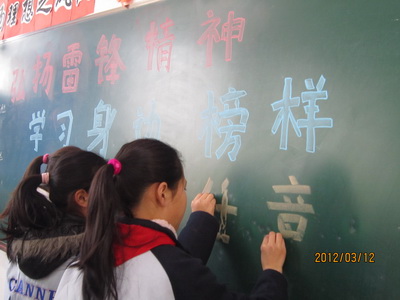 理想之
弘扬雷锋精神
学习身边榜样
音
2012/03/12